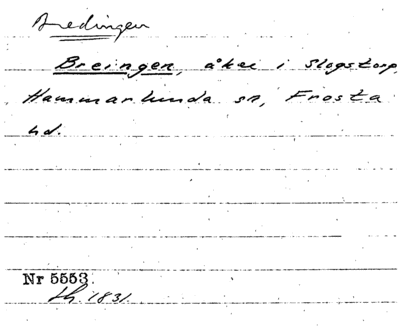 Bredingen
Breingen, åker i Slogstorp,
Hammarlunda sn, Frosta
hd.
Nr 5553.
Lh. 1831.